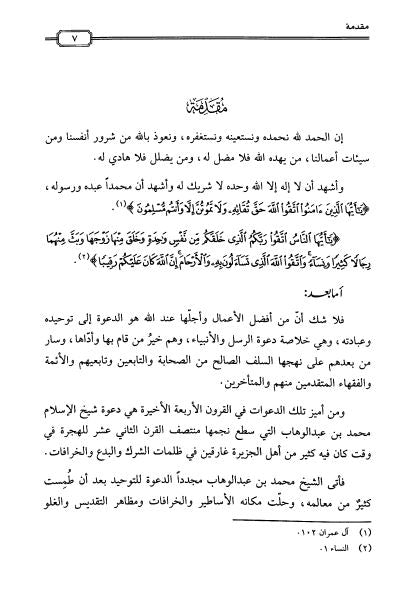 مقدمة
٧
مُقَدِّمَة
إن الحمد لله نحمده ونستعينه ونستغفره، ونعوذ بالله من شرور أنفسنا ومن
سيئات أعمالنا، من يهده الله فلا مضل له، ومن يضلل فلا هادي له.
وأشهد أن لا إله إلا الله وحده لا شريك له وأشهد أن محمداً عبده ورسوله،
﴿يَٰٓأَيُّهَا ٱلَّذِينَ ءَامَنُوا۟ ٱتَّقُوا۟ ٱللَّهَ حَقَّ تُقَاتِهِۦ وَلَا تَمُوتُنَّ إِلَّا وَأَنتُم مُّسْلِمُونَ﴾(١).
﴿يَٰٓأَيُّهَا ٱلنَّاسُ ٱتَّقُوا۟ رَبَّكُمُ ٱلَّذِى خَلَقَكُم مِّن نَّفْسٍ وَٰحِدَةٍ وَخَلَقَ مِنْهَا زَوْجَهَا وَبَثَّ مِنْهُمَا
رِجَالًا كَثِيرًا وَنِسَآءً ۚ وَٱتَّقُوا۟ ٱللَّهَ ٱلَّذِى تَسَآءَلُونَ بِهِۦ وَٱلْأَرْحَامَ ۚ إِنَّ ٱللَّهَ كَانَ عَلَيْكُمْ رَقِيبًا﴾(٢).
أما بعد:
فلا شك أنّ من أفضل الأعمال وأجلّها عند الله هو الدعوة إلى توحيده
وعبادته، وهي خلاصة دعوة الرسل والأنبياء، وهم خيرُ من قام بها وأدّاها، وسار
من بعدهم على نهجها السلف الصالح من الصحابة والتابعين وتابعيهم والأئمة
والفقهاء المتقدمين منهم والمتأخرين.
ومن أميز تلك الدعوات في القرون الأربعة الأخيرة هي دعوة شيخ الإسلام
محمد بن عبدالوهاب التي سطع نجمها منتصف القرن الثاني عشر للهجرة في
وقت كان فيه كثير من أهل الجزيرة غارقين في ظلمات الشرك والبدع والخرافات.
فأتى الشيخ محمد بن عبدالوهاب مجدداً الدعوة للتوحيد بعد أن طُمِست
كثيرٌ من معالمه، وحلّت مكانه الأساطير والخرافات ومظاهر التقديس والغلو
(١) آل عمران ١٠٢.
(٢) النساء ١.